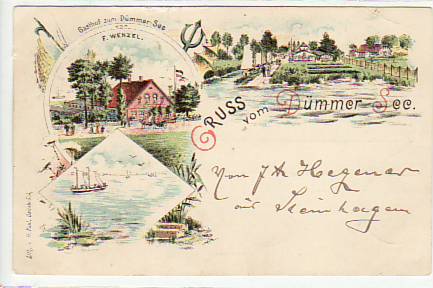 Gasthof zum Dümmer-See
von
F. WENZEL.
GRUSS vom Dümmer See.
Von J H Hegener
aus Steinhagen